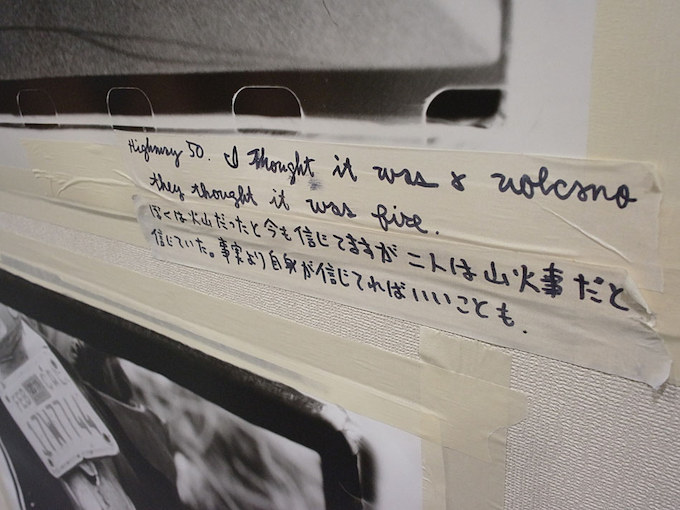 Highway 50. I thought it was a volcano
they thought it was fire.
ぼくは火山だったと今も信じてますが 二人は山火事だと
信じていた。事実より自身が信じてればいいことも.
17W7144